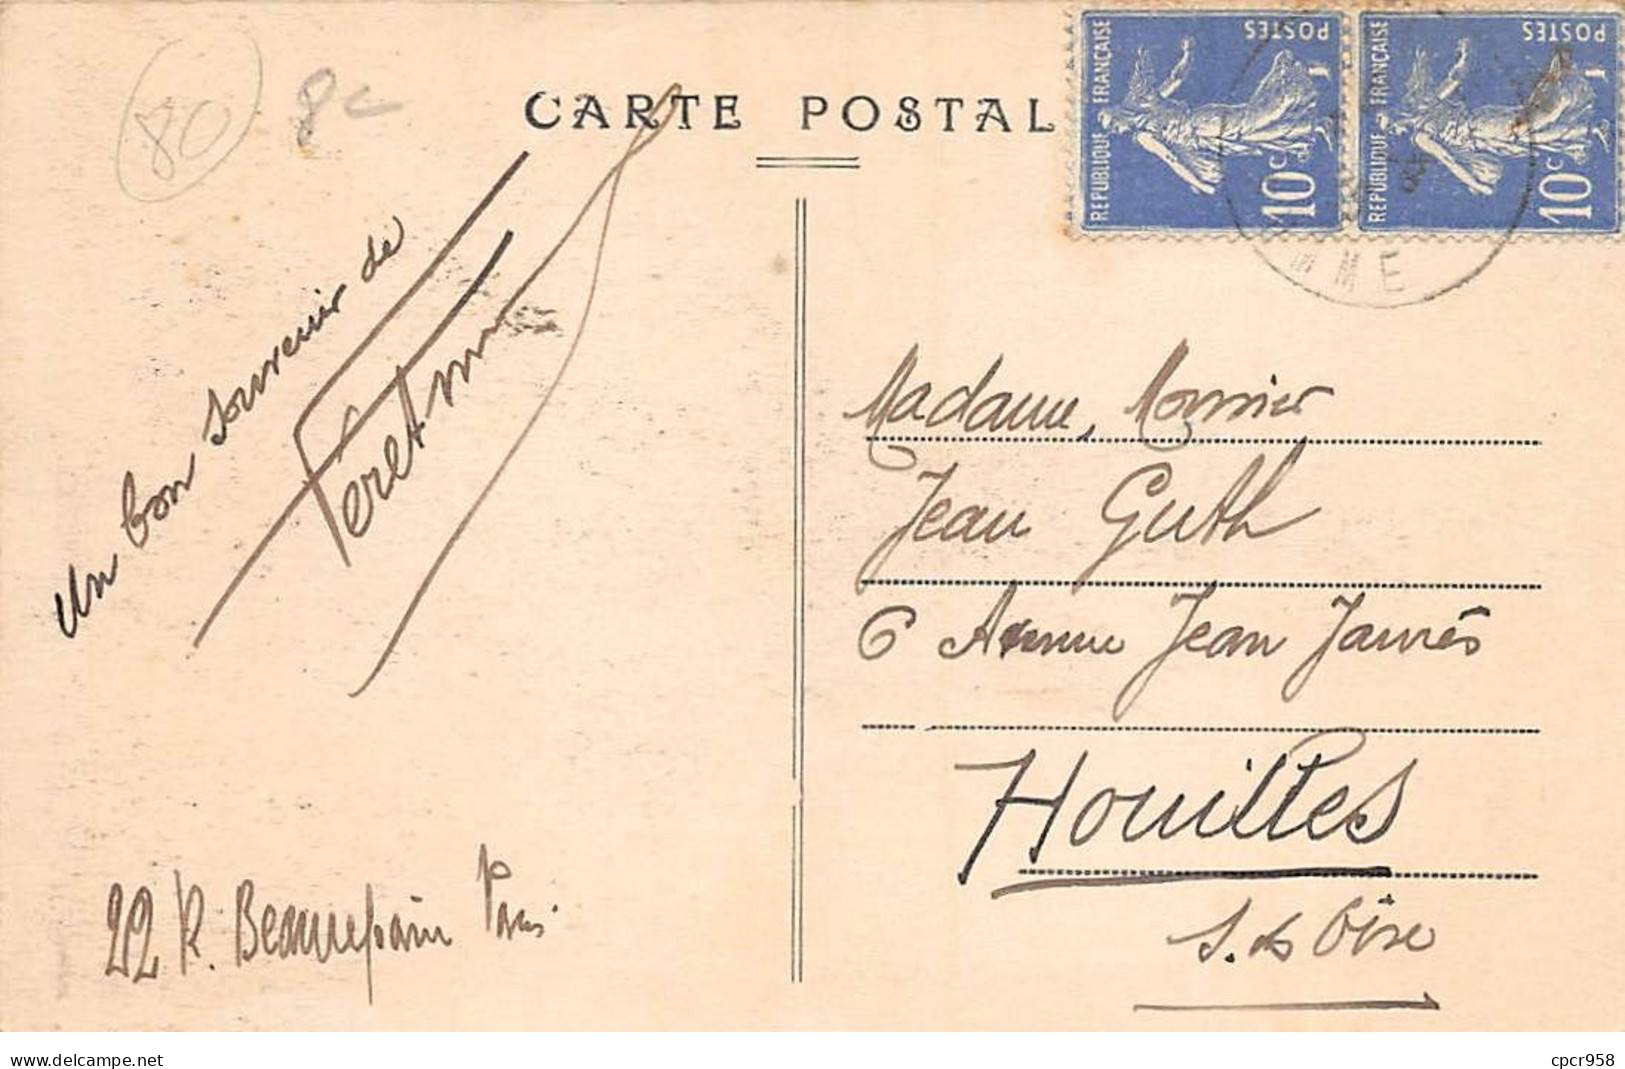 80
8c
CARTE POSTAL
REPUBLIQUE FRANÇAISE
POSTES
10c
REPUBLIQUE FRANÇAISE
POSTES
10c
MME
un bon souvenir de
Madame, Monsier
Jean Guth
6 Avenue Jean Jaurès
Houilles
S. et Oise
22 R. Beaurepaire Paris
www.delcampe.net
cpcr958